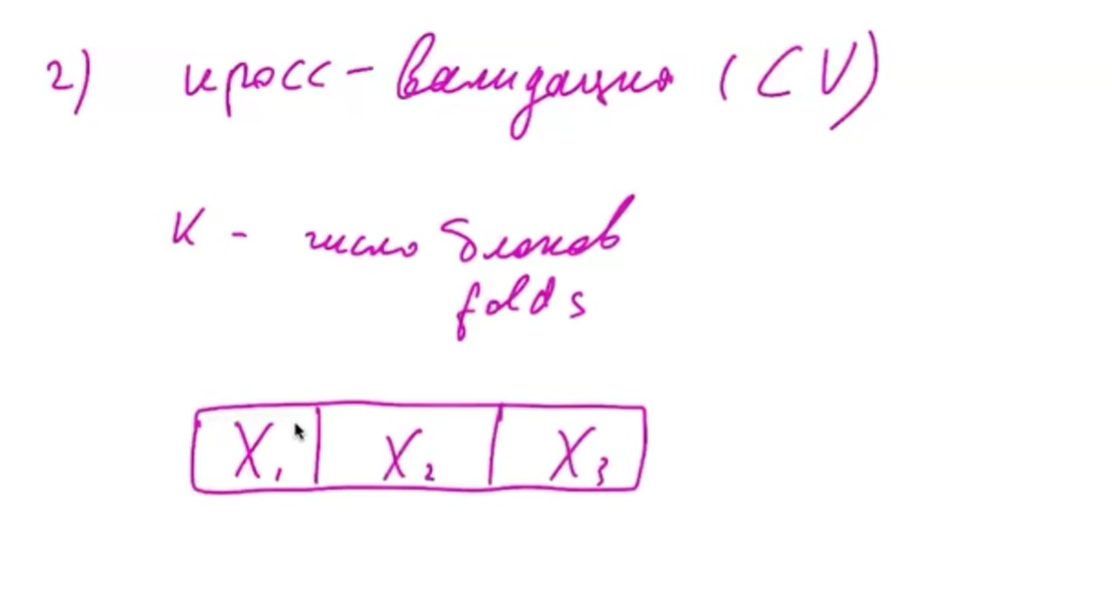 2) кросс-валидация (CV)
K - число блоков
folds
X₁ X₂ X₃